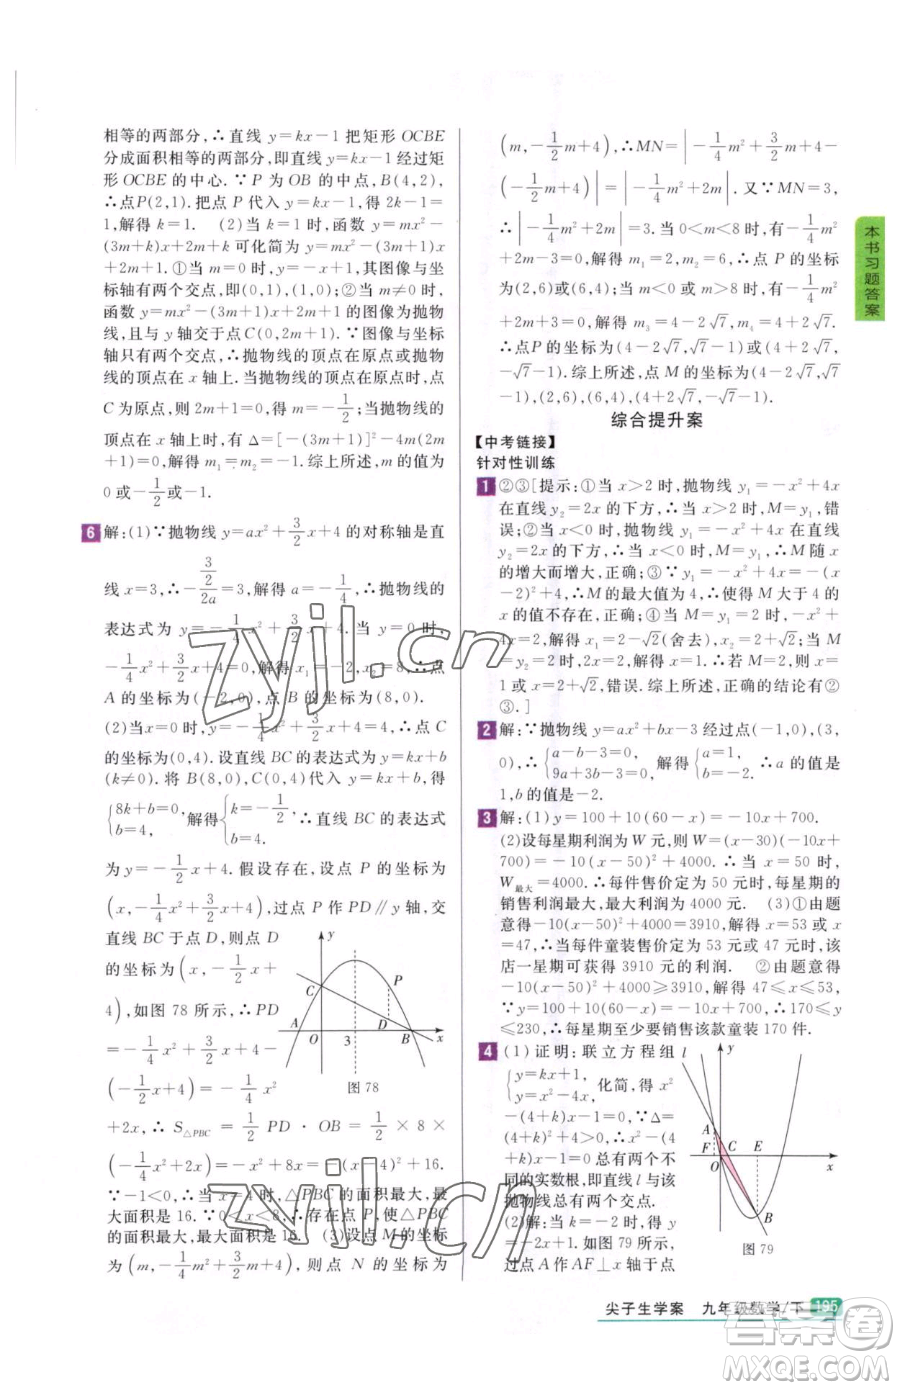 相等的两部分,∴直线 y=kx-1 把矩形 OCBE
分成面积相等的两部分,即直线 y=kx-1 经过矩
形 OCBE 的中心. ∵P 为 OB 的中点,B(4,2),
∴点P(2,1). 把点 P 代入 y=kx-1,得 2k-1=
1,解得 k=1. (2)当 k=1 时,函数 y=mx²-
(3m+k)x+2m+k 可化简为 y=mx²-(3m+1)x
+2m+1. ①当 m=0 时,y=-x+1,其图像与坐
标轴有两个交点,即(0,1),(1,0);②当 m≠0 时,
y=mx²-(3m+1)x+2m+1 的图像为抛物
线,且与 y 轴交于点C(0,2m+1). ∵图像与坐标
轴只有两个交点,∴抛物线的顶点在原点或抛物
线的顶点在 x 轴上. 当抛物线的顶点在原点,点
C 为原点,则 2m+1=0,解得 m=-1/2;当抛物线的
顶点在 x 轴上时,有 Δ=[-(3m+1)]²-4m(2m+
1)=0,解得 m₁=m₂=-1. 综上所述,m 的值为
0 或-1/2或-1.
6 解:(1)∵抛物线 y=ax²+3/2x+4 的对称轴是直
线 x=3,∴-(3/2)/2a=3,解得 a=-1/4,∴抛物线的
表达式为 y=-1/4x²+3/2x+4. 当 y=0 时,
-1/4x²+3/2x+4=0,解得 x₁=-2,x₂=8,∴点
A 的坐标为(-2,0),点 B 的坐标为(8,0).
(2)当 x=0 时,y=-1/4x²+3/2x+4=4,∴点 C
的坐标为(0,4). 设直线 BC 的表达式为 y=kx+b
(k≠0). 将 B(8,0),C(0,4)代入 y=kx+b,得
{8k+b=0, b=4, 解得{k=-1/2, b=4, ∴直线 BC 的表达式
为 y=-1/2x+4. 假设存在,设点 P 的坐标为
(x,-1/4x²+3/2x+4),过点 P 作 PD∥y 轴,交
直线 BC 于点 D,则点 D
的坐标为(x,-1/2x+
4),如图 78 所示,∴PD
=-1/4x²+3/2x+4-
(-1/2x+4)=-1/4x²
+2x,∴S△PBC=1/2PD·OB=1/2×8×
(-1/4x²+2x)=-x²+8x=-(x-4)²+16.
∵-1<0,∴当 x=4 时,△PBC 的面积最大,最
大面积是 16. ∵0<x<8,∴存在点 P,使△PBC
的面积最大,最大面积是 16. (3)设点 M 的坐标为
(m,-1/4m²+3/2m+4),则点 N 的坐标为
y
C
P
D
A
O
3
B
x
图 78
(m,-1/2m+4),∴MN=|-1/4m²+3/2m+4-
(-1/2m+4)|=|-1/4m²+2m|. 又∵MN=3,
∴|-1/4m²+2m|=3. 当 0<m<8 时,有-1/4m²
+2m-3=0,解得 m₁=2,m₂=6,∴点 P 的坐标
为(2,6)或(6,4);当 m<0 或 m>8 时,有-1/4m²
+2m+3=0,解得 m₃=4-2√7,m₄=4+2√7.
∴点P 的坐标为(4-2√7,√7-1)或(4+2√7,
-√7-1). 综上所述,点 M 的坐标为(4-2√7,
√7-1),(2,6),(6,4),(4+2√7,-√7-1).
综合提升案
【中考链接】
针对性训练
1 ②③[提示:①当 x>2 时,抛物线 y₁=-x²+4x
在直线 y₂=2x 的下方,∴当 x>2 时,M=y₁,错
误;②当 x<0 时,抛物线 y₁=-x²+4x 在直线
y₂=2x 的下方,∴当 x<0 时,M=y₁,∴M 随 x
的增大而增大,正确;③∵y₁=-x²+4x=-(x
-2)²+4,∴M 的最大值为 4,∴使得 M 大于 4 的
x 的值不存在,正确;④当 M=y₁=2 时,有-x²+
4x=2,解得 x₁=2-√2(舍去),x₂=2+√2;当
M=y₂=2 时,有 2x=2,解得 x=1. ∴若 M=2,
则 x=1 或 x=2+√2,错误. 综上所述,正确的有②
③.]
2 解:∵抛物线 y=ax²+bx-3 经过点(-1,0),(3,
0),∴{a-b-3=0, 9a+3b-3=0, 解得{a=1, b=-2. ∴a 的值是
1,b 的值是-2.
3 解:(1)y=100+10(60-x)=-10x+700.
(2)设每星期利润为 W 元,则 W=(x-30)(-10x+
700)=-10(x-50)²+4000. ∴当 x=50 时,
W最大=4000. ∴每件售价定为 50 元时,每星期的
销售利润最大,最大利润为 4000 元. (3)①由题
意得-10(x-50)²+4000=3910,解得 x=53 或 x
=47,∴当每件童装售价定为 53 元或 47 元时,该
店一星期可获得 3910 元的利润. ②由题意得
-10(x-50)²+4000≥3910,解得 47≤x≤53,
∵y=100+10(60-x)=-10x+700,∴170≤y
≤230,∴每星期至少要销售该款童装 170 件.
4 (1)证明:联立方程组
{y=kx+1, y=x²-4x, 化简,得 x²
-(4+k)x-1=0,∵Δ=
(4+k)²+4>0,∴x²-
(4+k)x-1=0 有两个不
同的实数根,即直线 l 与该
抛物线总有两个交点.
(2)解:当 k=-2 时,y=
-2x+1. 如图 79 所示,
过点 A 作 AF⊥x 轴于点
l
y
A
F
C
E
O
x
B
图 79
本书习题答案
尖子生学案 九年级数学/下 195
zyjl.cn
zyjl.cn
答案圈
MXQE.COM